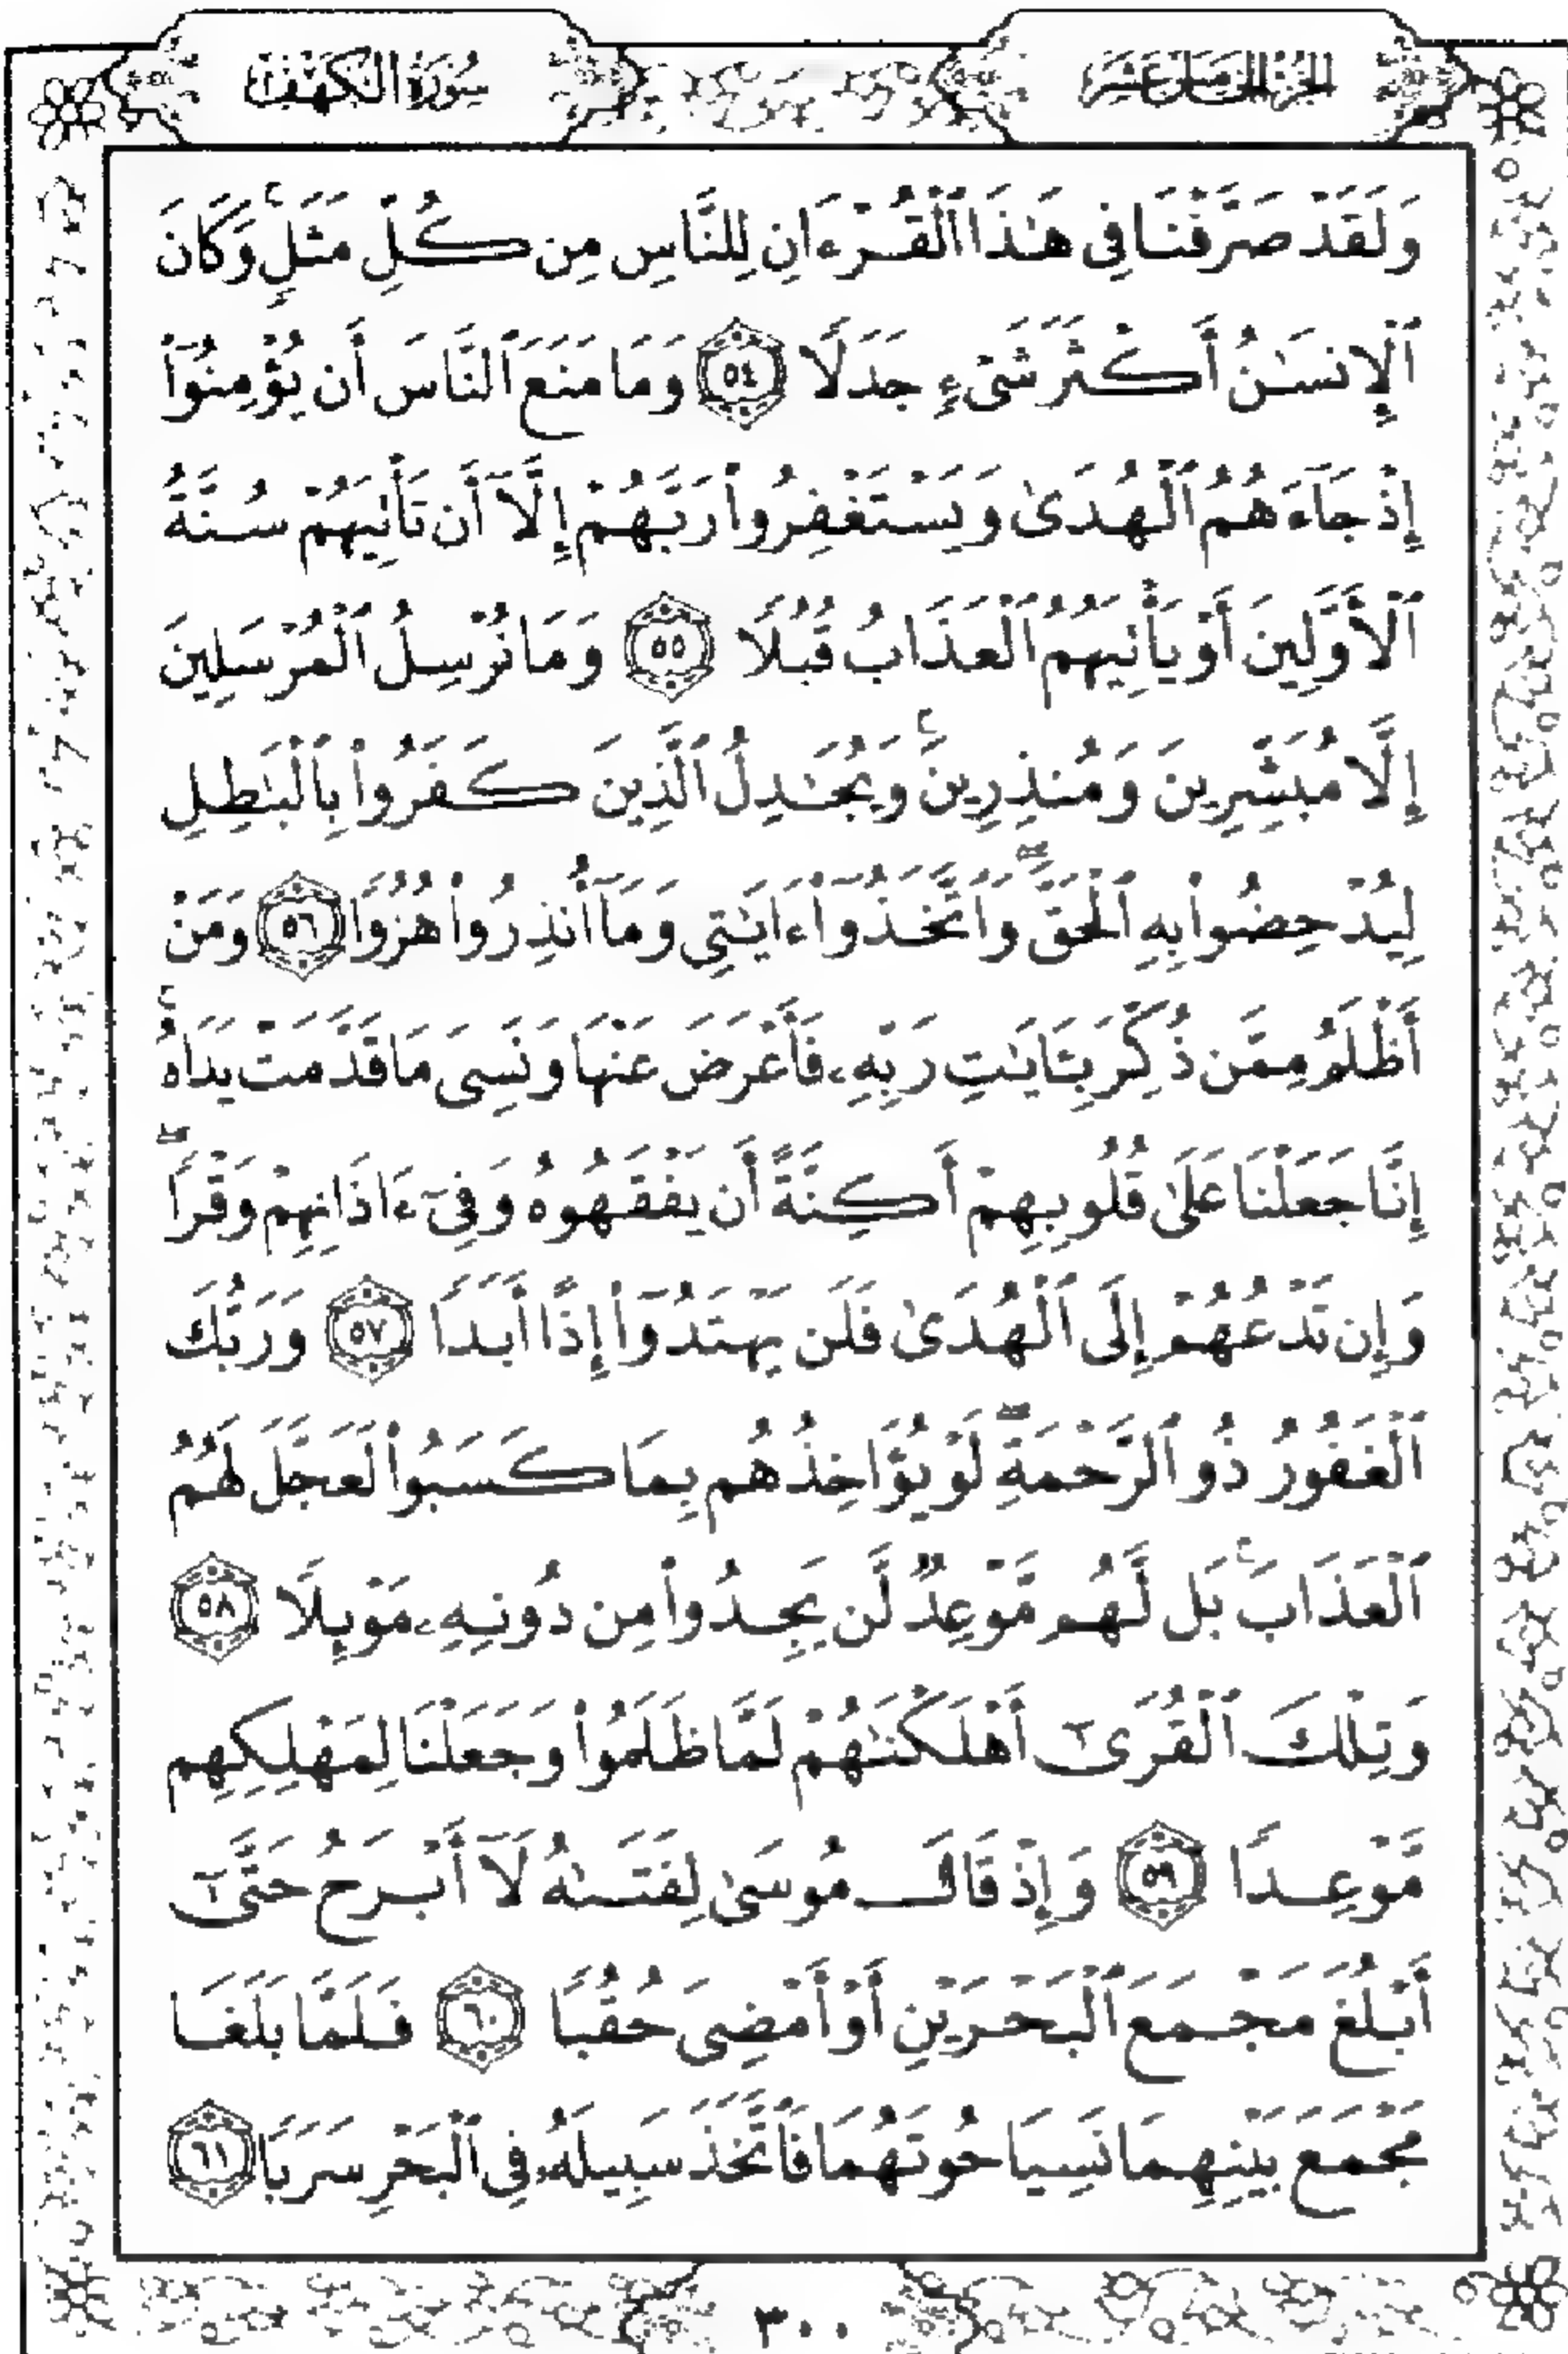 سُورَةُ الكَهْفِ
الجُزْءُ الخَامِسَ عَشَرَ
وَلَقَدْ صَرَّفْنَا فِى هَـٰذَا ٱلْقُرْءَانِ لِلنَّاسِ مِن كُلِّ مَثَلٍۚ وَكَانَ
ٱلْإِنسَـٰنُ أَكْثَرَ شَىْءٍ جَدَلًا ٥٤ وَمَا مَنَعَ ٱلنَّاسَ أَن يُؤْمِنُوٓا۟
إِذْ جَآءَهُمُ ٱلْهُدَىٰ وَيَسْتَغْفِرُوا۟ رَبَّهُمْ إِلَّآ أَن تَأْتِيَهُمْ سُنَّةُ
ٱلْأَوَّلِينَ أَوْ يَأْتِيَهُمُ ٱلْعَذَابُ قُبُلًا ٥٥ وَمَا نُرْسِلُ ٱلْمُرْسَلِينَ
إِلَّا مُبَشِّرِينَ وَمُنذِرِينَۚ وَيُجَـٰدِلُ ٱلَّذِينَ كَفَرُوا۟ بِٱلْبَـٰطِلِ
لِيُدْحِضُوا۟ بِهِ ٱلْحَقَّۖ وَٱتَّخَذُوٓا۟ ءَايَـٰتِى وَمَآ أُنذِرُوا۟ هُزُوًا ٥٦ وَمَنْ
أَظْلَمُ مِمَّن ذُكِّرَ بِـَٔايَـٰتِ رَبِّهِۦ فَأَعْرَضَ عَنْهَا وَنَسِىَ مَا قَدَّمَتْ يَدَاهُۚ
إِنَّا جَعَلْنَا عَلَىٰ قُلُوبِهِمْ أَكِنَّةً أَن يَفْقَهُوهُ وَفِىٓ ءَاذَانِهِمْ وَقْرًاۖ
وَإِن تَدْعُهُمْ إِلَى ٱلْهُدَىٰ فَلَن يَهْتَدُوٓا۟ إِذًا أَبَدًا ٥٧ وَرَبُّكَ
ٱلْغَفُورُ ذُو ٱلرَّحْمَةِۖ لَوْ يُؤَاخِذُهُم بِمَا كَسَبُوا۟ لَعَجَّلَ لَهُمُ
ٱلْعَذَابَۚ بَل لَّهُم مَّوْعِدٌ لَّن يَجِدُوا۟ مِن دُونِهِۦ مَوْئِلًا ٥٨
وَتِلْكَ ٱلْقُرَىٰٓ أَهْلَكْنَـٰهُمْ لَمَّا ظَلَمُوا۟ وَجَعَلْنَا لِمَهْلِكِهِم
مَّوْعِدًا ٥٩ وَإِذْ قَالَ مُوسَىٰ لِفَتَىٰهُ لَآ أَبْرَحُ حَتَّىٰٓ
أَبْلُغَ مَجْمَعَ ٱلْبَحْرَيْنِ أَوْ أَمْضِىَ حُقُبًا ٦٠ فَلَمَّا بَلَغَا
مَجْمَعَ بَيْنِهِمَا نَسِيَا حُوتَهُمَا فَٱتَّخَذَ سَبِيلَهُۥ فِى ٱلْبَحْرِ سَرَبًا ٦١
٣٠٠